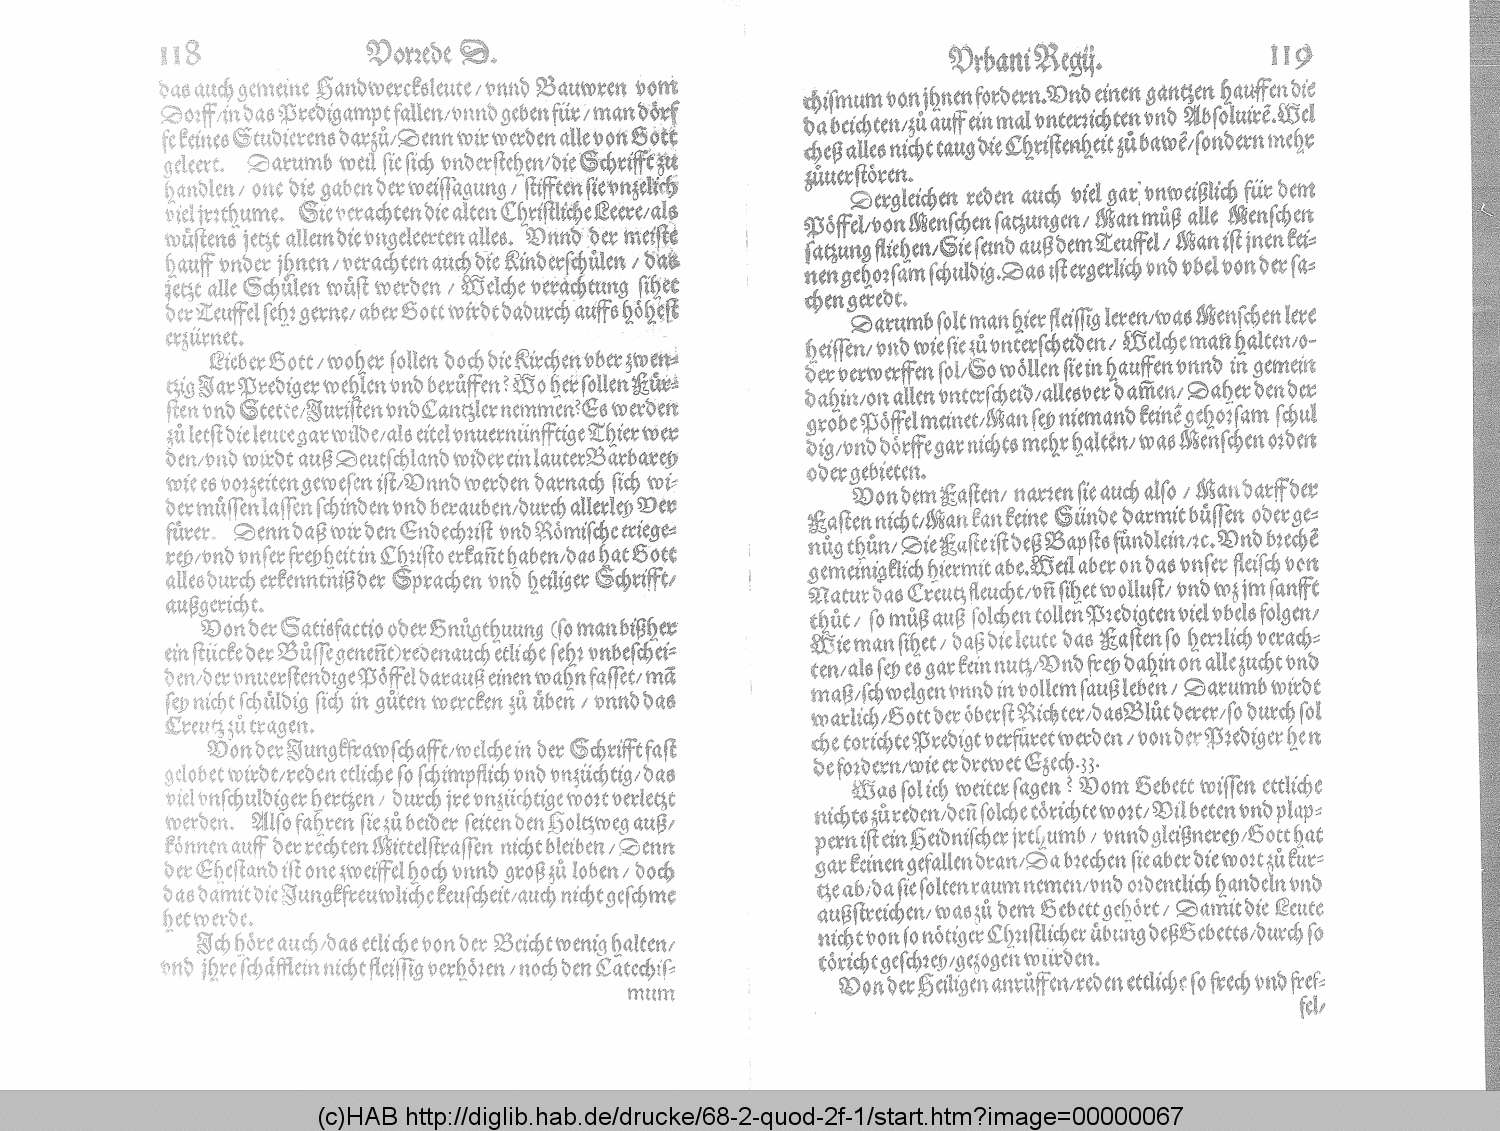 118 Vorrede D.
das auch gemeine Handwercksleute / vnnd Bauwren vom
Dorff / in das Predigampt fallen / vnnd geben für / man dörf
fe keines Studierens darzů / Denn wir werden alle von Gott
geleert. Darumb weil sie sich vnderstehen / die Schrifft zu
handlen / one die gaben der weissagung / stifften sie vnzelich
viel jrrthume. Sie verachten die alten Christliche Leere / als
wüstens jetzt allein die vngeleerten alles. Vnnd der meiste
hauff vnder jhnen / verachten auch die Kinderschůlen / das
jetzt alle Schůlen wüst werden / Welche verachtung sihet
der Teuffel sehr gerne / aber Gott wirdt dadurch auffs höhest
erzürnet.
Lieber Gott / woher sollen doch die Kirchen vber zwen=
tzig Jar Prediger wehlen vnd berůffen? Wo her sollen Für=
sten vnd Stette / Juristen vnd Cantzler nemmen? Es werden
zů letst die leute gar wilde / als eitel vnuernünfftige Thier wer
den / vnd wirdt auß Deutschland wider ein lauter Barbarey
wie es vorzeiten gewesen ist / Vnnd werden darnach sich wi=
der müssen lassen schinden vnd berauben / durch allerley Ver
fürer. Denn daß wir den Endechrist vnd Römische triege=
rey / vnd vnser freyheit in Christo erkañt haben / das hat Gott
alles durch erkenntniß der Sprachen vnd heiliger Schrifft /
außgericht.
Von der Satisfactio oder Gnůgthuung (so man bißher
ein stücke der Bůsse geneñt) reden auch etliche sehr vnbeschei=
den / der vnuerstendige Pöffel darauß einen wahn fasset / mã
sey nicht schüldig sich in gůten wercken zů üben / vnnd das
Creutz zů tragen.
Von der Jungkfrawschafft / welche in der Schrifft fast
gelobet wirdt / reden etliche so schimpflich vnd vnzüchtig / das
viel vnschuldiger hertzen / durch jre vnzüchtige wort verletzt
werden. Also fahren sie zů beider seiten den Holtzweg auß /
können auff der rechten Mittelstrassen nicht bleiben / Denn
der Ehestand ist one zweiffel hoch vnnd groß zů loben / doch
das damit die Jungkfreuwliche keuscheit / auch nicht geschme
het werde.
Ich höre auch / das etliche von der Beicht wenig halten /
vnd jhre schäfflein nicht fleissig verhören / noch den Catechis=
mum
Vrbani Regij. 119
chismum von jhnen fordern. Vnd einen gantzen hauffen die
da beichten / zů auff ein mal vnterrichten vnd Absoluirẽ. Wel
cheß alles nicht taug die Christenheit zů bawẽ / sondern mehr
zůuerstören.
Dergleichen reden auch viel gar vnweißlich für dem
Pöffel / von Menschen satzungen / Man můß alle Menschen
satzung fliehen / Sie seind auß dem Teuffel / Man ist jnen kei=
nen gehorsam schuldig. Das ist ergerlich vnd vbel von der sa=
chen geredt.
Darumb solt man hier fleissig leren / was Menschen lere
heissen / vnd wie sie zů vnterscheiden / Welche man halten / o=
der verwerffen sol / So wöllen sie in hauffen vnnd in gemein
dahin / on allen vnterscheid / alles ver dam̃en / Daher den der
grobe Pöffel meinet / Man sey niemand keinẽ gehorsam schul
dig / vnd dörffe gar nichts mehr halten / was Menschen orden
oder gebieten.
Von dem Fasten / narren sie auch also / Man darff der
Fasten nicht / Man kan keine Sünde darmit büssen oder ge=
nůg thůn / Die Faste ist deß Bapsts fündlein / ꝛc. Vnd brechẽ
gemeinigklich hiermit abe. Weil aber on das vnser fleisch von
Natur das Creutz fleucht / vñ sihet wollust / vnd wz jm sanfft
thůt / so můß auß solchen tollen Predigten viel vbels folgen /
Wie man sihet / daß die leute das Fasten so herrlich verach=
ten / als sey es gar kein nutz / Vnd frey dahin on alle zucht vnd
maß / schwelgen vnnd in vollem sauß leben / Darumb wirdt
warlich / Gott der öberst Richter / das Blůt derer / so durch sol
che torichte Predigt verfüret werden / von der Prediger hen
de fordern / wie er drewet Ezech. 33.
Was sol ich weiter sagen? Vom Gebett wissen ettliche
nichts zů reden / deñ solche törichte wort / Vil beten vnd plap=
pern ist ein Heidnischer jrthumb / vnnd gleißnerey / Gott hat
gar keinen gefallen dran / Da brechen sie aber die wort zů kur=
tze ab / da sie solten raum nemen / vnd ordentlich handeln vnd
außstreichen / was zů dem Gebett gehört / Damit die Leute
nicht von so nötiger Christlicher übung deß Gebetts / durch so
töricht geschrey / gezogen würden.
Von der Heiligen anrůffen / reden ettliche so frech vnd fref=
fel /
(c)HAB http://diglib.hab.de/drucke/68-2-quod-2f-1/start.htm?image=00000067